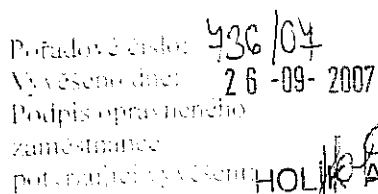 Pořadové číslo: 736/07
Vyvěšeno dne: 26-09-2007
Podpis oprávněného
zaměstnance
potvrzující vyvěšení: HOL